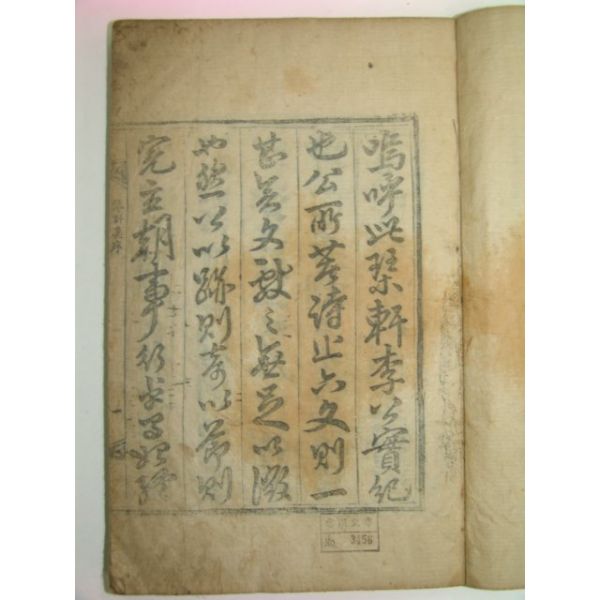 嗚呼此琹軒李公實紀
也公所著詩止六文則一
甚矣文獻之無足以徵
也然公以跡則奇以節則
完立朝事行
No. 3456